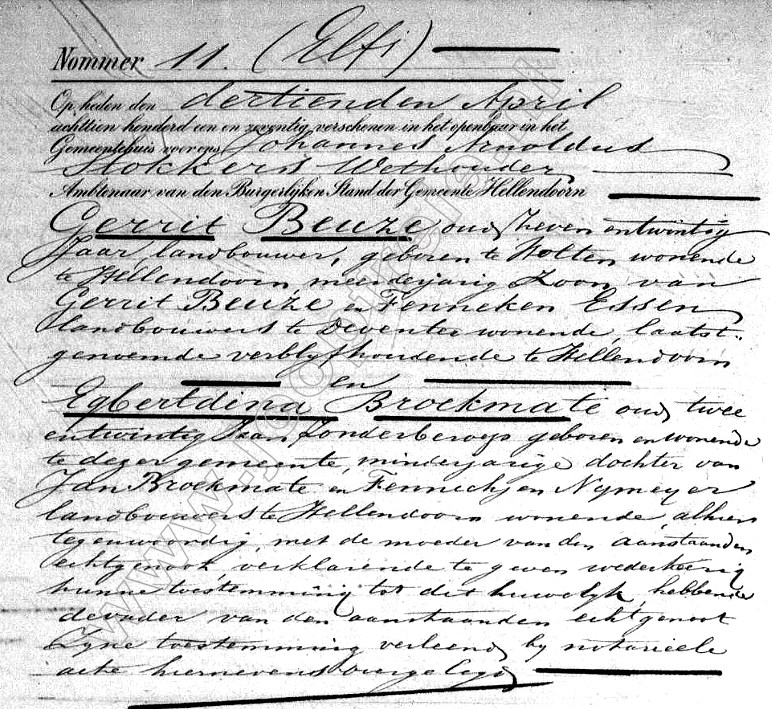 Nommer 11. (Elf)
Op heden den dertienden April
achttien honderd een en zeventig, verschenen in het openbaar in het
Gemeentehuis voor ons, Johannes Arnoldus
Stokkers Wethouder,
Ambtenaar van den Burgerlijken Stand der Gemeente Hellendoorn
Gerrit Beuze oud zeven entwintig
Jaar, landbouwer, geboren te Holten wonende
te Hellendoorn meerderjarig Zoon van
Gerrit Beuze en Fenneken Essen
landbouwers te Deventer wonende, laatst-
genoemde verblyfhoudende te Hellendoorn
en
Egbertdina Broekmate oud twee
entwintig Jaar Zonderberoep geboren en wonende
te dezer gemeente, minderjarige dochter van
Jan Broekmate en Fennechjen Nymeyer
landbouwers te Hellendoorn wonende, alhier
tegenwoordig, met de moeder van den aanstaanden
echtgenoot, verklarende te geven wederkeerig
hunne toestemming tot dit huwelyk, hebbende
de vader van den aanstaanden echtgenoot
Zyne toestemming verleend by notarieele
acte hiernevens overgelegd